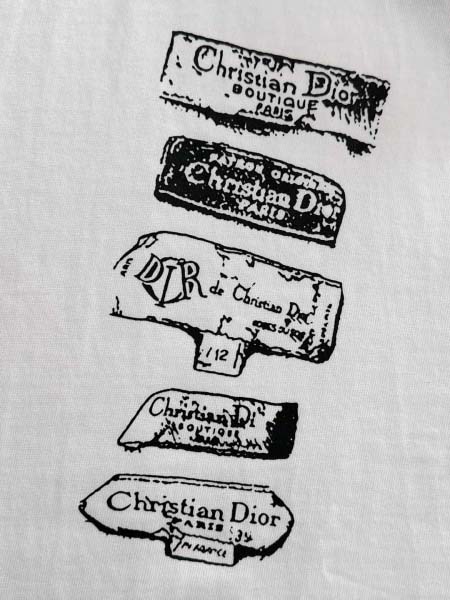 Christian Dior
BOUTIQUE
PARIS
PATRON ORIGINAL
Christian Dior
PARIS
DIOR de Christian Dior
112
Christian Di
BOUTIQUE
PARIS
Christian Dior
PARIS